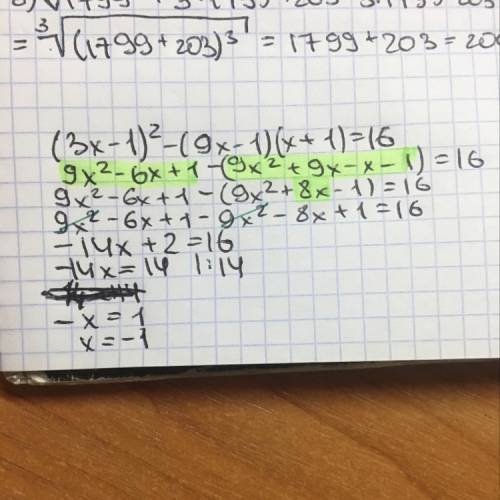 = ∛((1799+203)³) = 1799+203=200
(3x-1)²-(9x-1)(x+1)=16
9x²-6x+1-(9x²+9x-x-1)=16
9x²-6x+1-(9x²+8x-1)=16
9x²-6x+1-9x²-8x+1=16
-14x+2=16
-14x=14 |:14
-x=1
x=-1